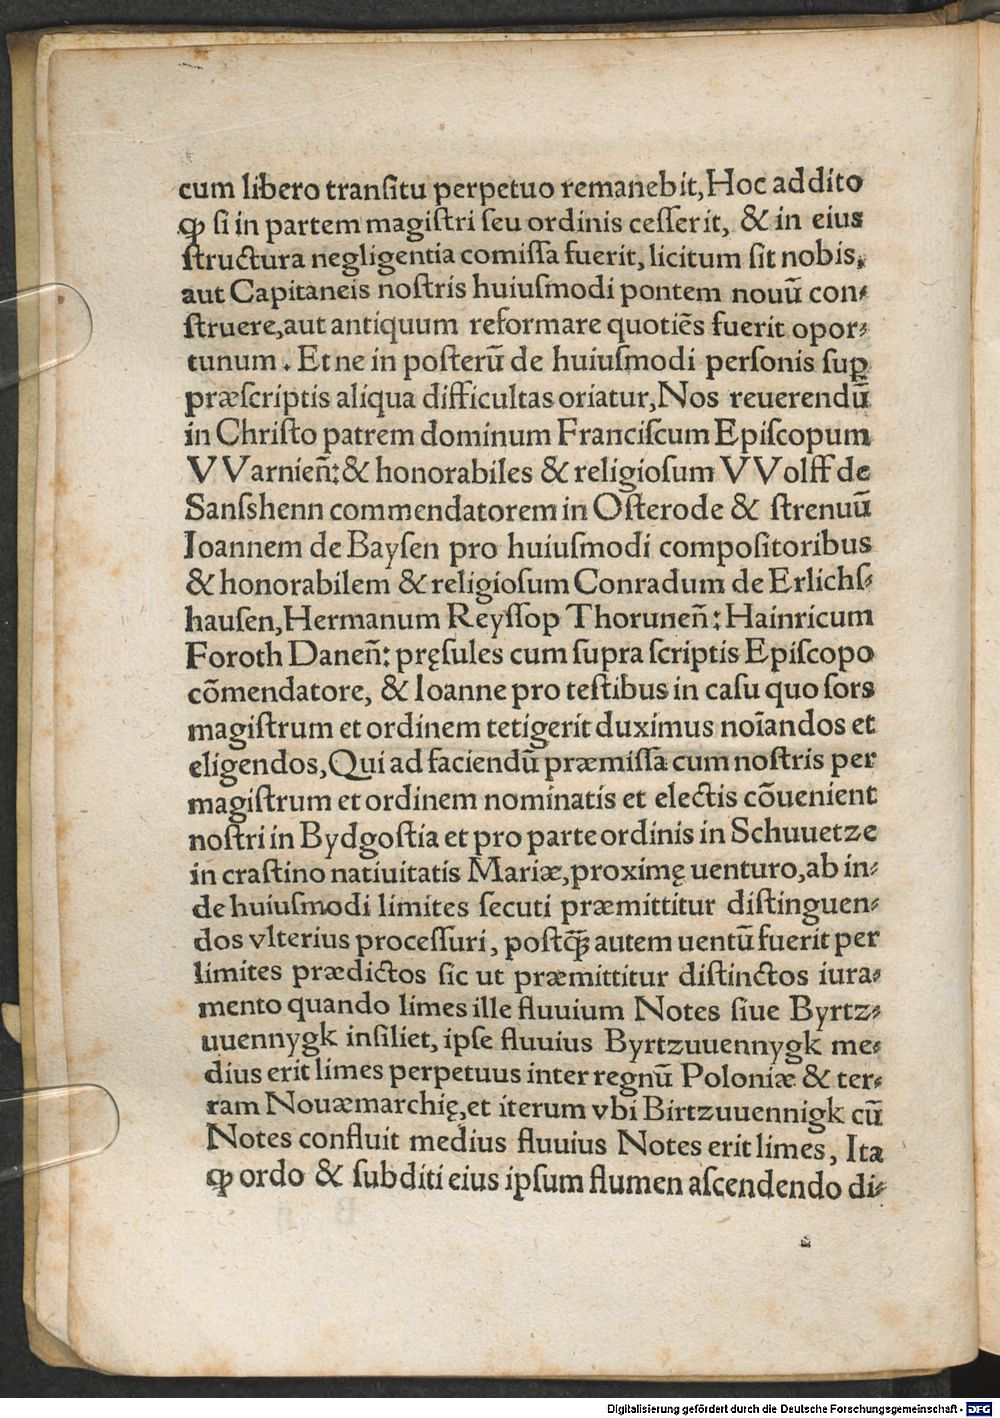 cum libero tranſitu perpetuo remanebit, Hoc addito
ꝙ ſi in partem magiſtri ſeu ordinis ceſſerit, & in eius
ſtructura negligentia comiſſa fuerit, licitum ſit nobis,
aut Capitaneis noſtris huiuſmodi pontem nouū con⸗
ſtruere, aut antiquum reformare quotiēs fuerit opor⸗
tunum. Et ne in poſterū de huiuſmodi perſonis ſuꝑ
præſcriptis aliqua difficultas oriatur, Nos reuerendū
in Chriſto patrem dominum Franciſcum Epiſcopum
VVarnien̄: & honorabiles & religioſum VVolff de
Sanſshenn commendatorem in Oſterode & ſtrenuū
Ioannem de Bayſen pro huiuſmodi compoſitoribus
& honorabilem & religioſum Conradum de Erlichſ⸗
hauſen, Hermanum Reyſſop Thorunen̄: Hainricum
Foroth Danen̄: pręſules cum ſupra ſcriptis Epiſcopo
cōmendatore, & Ioanne pro teſtibus in caſu quo ſors
magiſtrum et ordinem tetigerit duximus noīandos et
eligendos, Qui ad faciendū præmiſſa cum noſtris per
magiſtrum et ordinem nominatis et electis cōuenient
noſtri in Bydgoſtia et pro parte ordinis in Schuuetze
in craſtino natiuitatis Mariæ, proximę uenturo, ab in⸗
de huiuſmodi limites ſecuti præmittitur diſtinguen⸗
dos vlterius proceſſuri, poſtꝙ̄ autem uentū fuerit per
limites prædictos ſic ut præmittitur diſtinctos iura⸗
mento quando limes ille fluuium Notes ſiue Byrtz⸗
uuennygk inſiliet, ipſe fluuius Byrtzuuennygk me⸗
dius erit limes perpetuus inter regnū Poloniæ & ter⸗
ram Nouæmarchię, et iterum vbi Birtzuuennigk cū
Notes confluit medius fluuius Notes erit limes, Ita
ꝙ ordo & ſubditi eius ipſum flumen aſcendendo di⸗
Digitalisierung gefördert durch die Deutsche Forschungsgemeinschaft - DFG